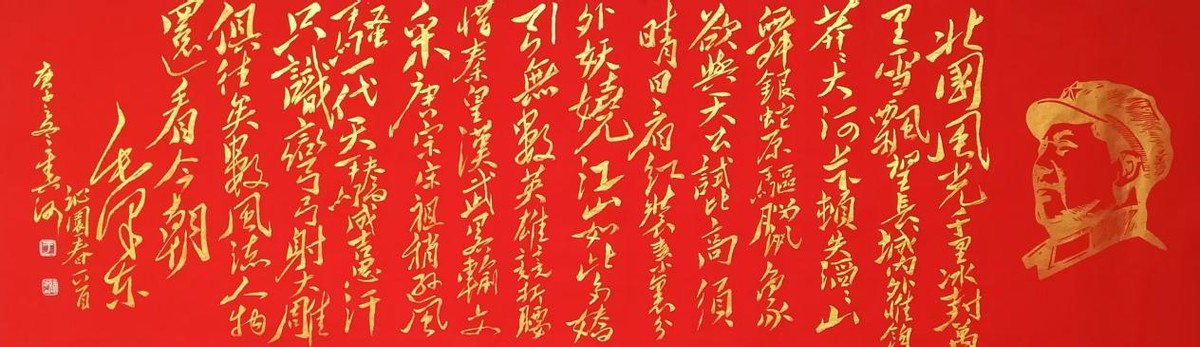 北國風光千里冰封萬
里雪飄望長城內外惟餘
莽〻大河上下頓失滔〻山
舞銀蛇原驅臘象
欲與天公試比高須
晴日看紅裝素裹分
外妖嬈江山如此多嬌
引無數英雄競折腰
惜秦皇漢武略輸文
采唐宗宋祖稍遜風
騷一代天驕成吉思汗
只識彎弓射大雕
俱往矣數風流人物
還看今朝
毛澤東
沁園春一首
庚子冬書